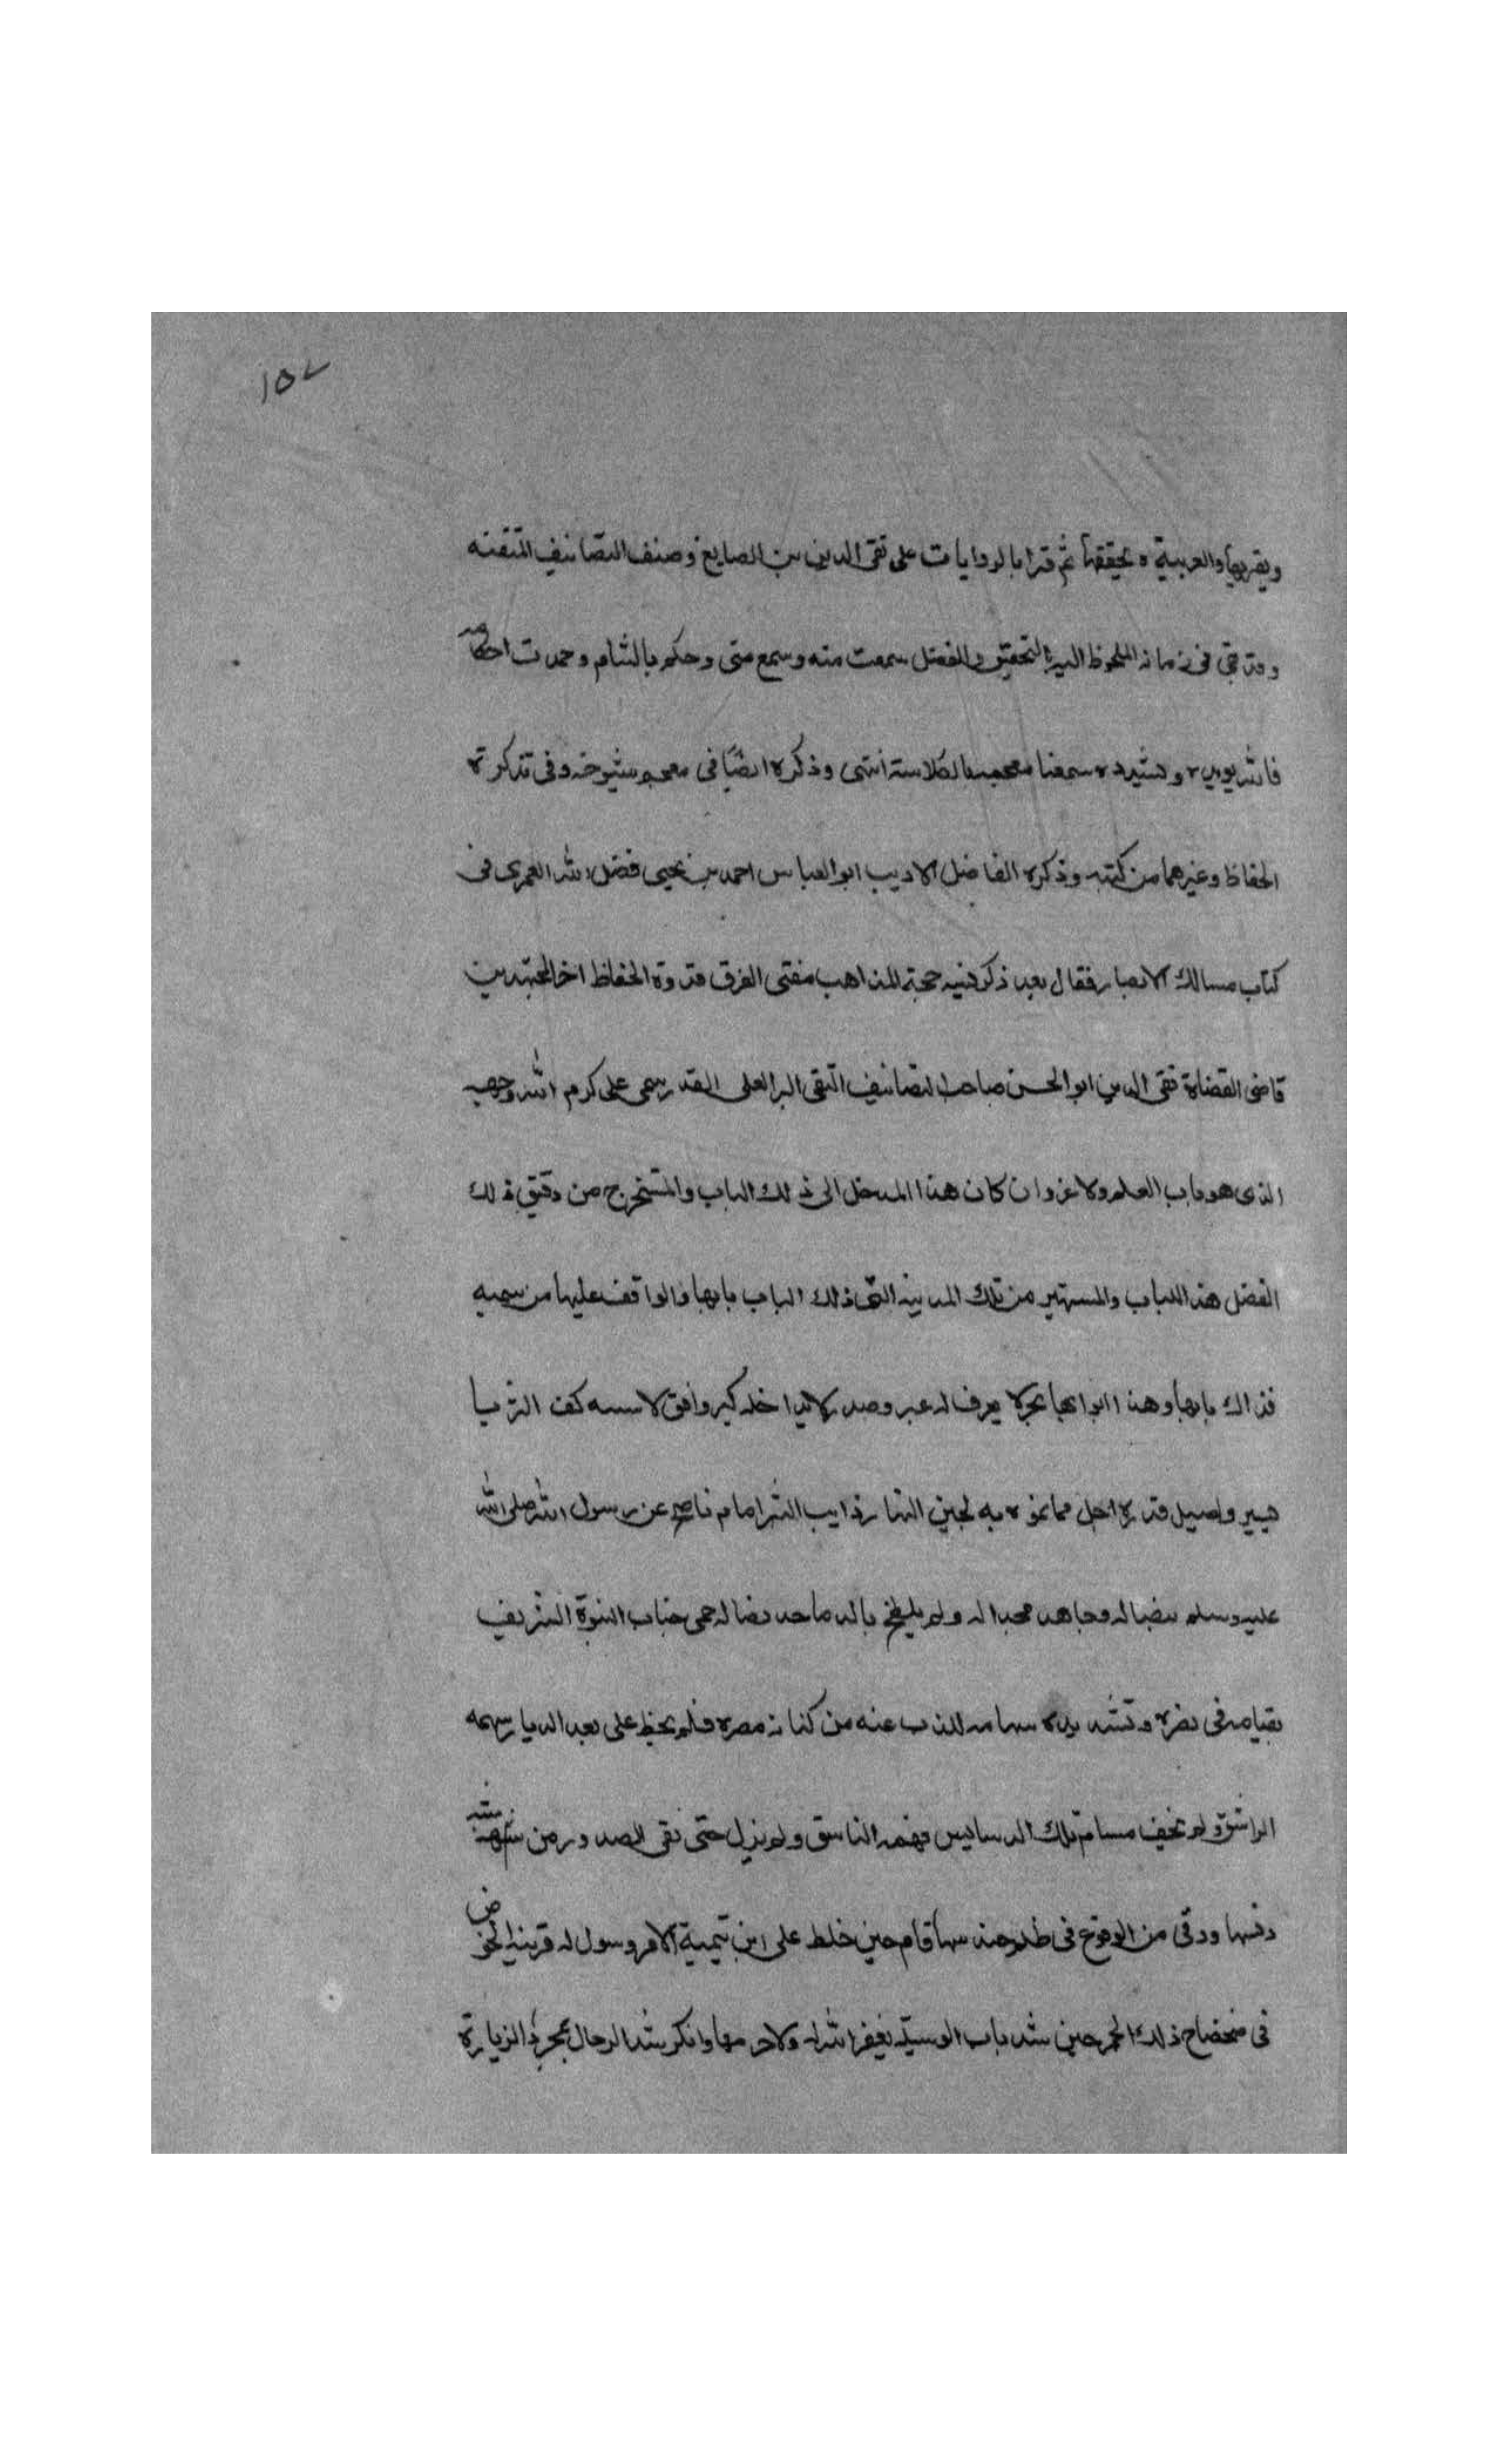 ١٥٧
ويقربها والعربية و يحققها ثم قرا بالروايات على تقى الدين بن الصايغ وصنف التصانيف المتقنه
وقد بقى فى زمانه الملحوظ اليه بالتحقيق والفضل سمعت منه وسمع منى وحكم بالشام وحمدت احكامه
فالله يويده ويسدده سمعنا معجمه بالكلاسة انتهى وذكره ايضًا فى معجم شيوخه وفى تذكرة
الحفاظ وغيرهما من كتبه وذكره الفاضل الاديب ابو العباس احمد بن يحيى فضل الله العمرى فى
كتاب مسالك الابصار فقال بعد ذكر فيه حجة المذاهب مفتى الفرق قدوة الحفاظ اخر المجتهدين
قاضى القضاة تقى الدين ابو الحسن صاحب التصانيف التقى البر العلى القدر سمى على كرم الله وجهه
الذى هو باب العلم ولا غرو ان كان هذا المدخل الى ذلك الباب والمستخرج من دقيق ذلك
الفضل هذا اللباب والمستمير من تلك المدينه التى ذلك الباب بابها والواقف عليها من سميه
فذاك بابها وهذا ابوابها بحر لا يعرف له عبر وصدر لا يداخله كبر وافق لا سسه كف الثريا
بشبر واصيل قدره اجل مما يموه به لجين النهار ذايب التبر امام ناضح عن رسول الله صلى الله
عليه وسلم بنضاله وجاهد بجداله ولم يلطخ بالدما حد نصاله حمى جناب النبوة الشريف
بقيامه فى نصره وتسديده سهامه للذب عنه من كنانه مصره فلم يخط على بعد الديار سهمه
الراشق ولم يخف مسام تلك الدسايس فهمه الناشق ولم يزل حتى نقى الصدور من شبهه
دنسها ووقى من الوقوع فى ظلم حندسها قام حين خلط على ابن تيمية الامر وسول له قرينه الخوض
فى ضحضاح ذلك الجمر حين سد باب الوسيله يغفر الله له ولا حرمها وانكر شد الرحال بمجرد الزيارة